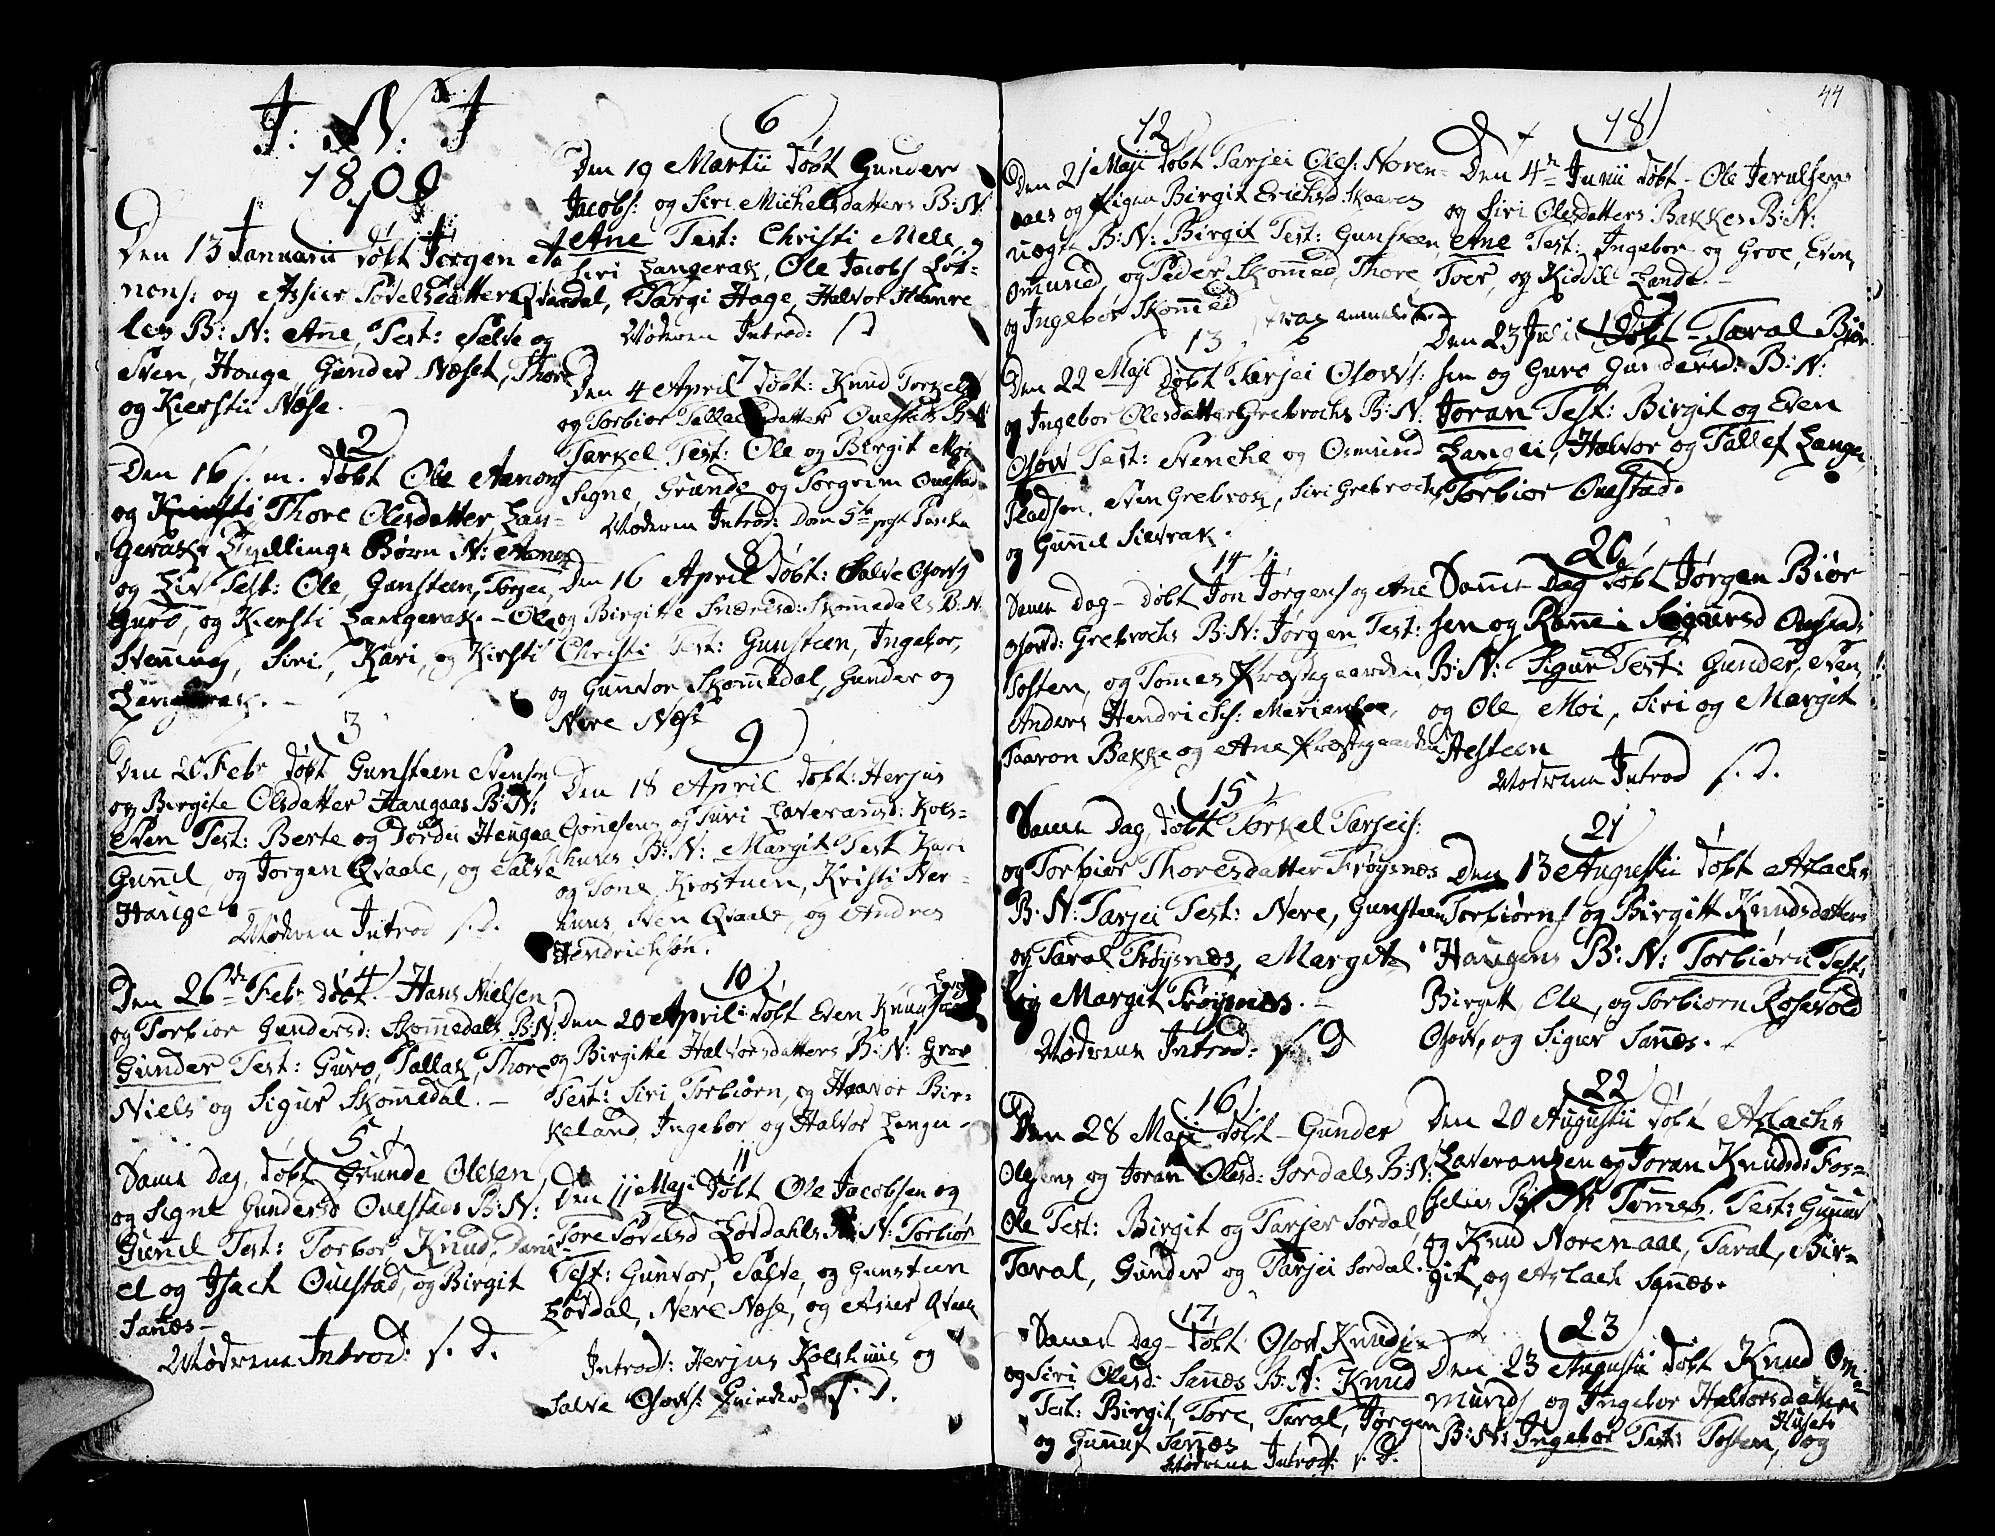 J: N: J
1809
1
Den 13 Januarii døbt Jørgen Aa
nons: og Assier Søvelsdatter Qvaa
les B: N: Ane, Test: Salve og
Sven, Houge, Gunder Næset, Thore
og Kiersti Næse.
2
Den 16 s. m. døbt Ole Aanons
og Thore Olesdatter Lan-
geraks Tvillinge Børn N: Aanon
og Liv Test: Ole, Gunsteen, Torjer,
Guro, og Kiersti Langerak. - Ole
Siri, Kari, og Kirsti
Langerak. -
3
Den 20 Febr døbt Gunsteen Svenson
og Birgite Olsdatter Haugaas B: N:
Sven Test: Berte og Tordis Haugaa
Gunild, og Jorgen Qvaale, og Salve
Hauge
Moderen Introd s. D.
4
Den 26de Febr døbt Hans Nielsen
og Torbior Gundersd: Skomedals B: N:
Gunder Test: Guro, Tallak, Thore
Niels og Sigur Skomedal. -
5
Samme Dag, døbt Grunde Olesen
og Signe Gundersd Ouestads B: N:
Gunild Test: Torbor, Knud, Dani-
el og Isach Ouestad, og Birgit
Sanes -
Moderene Introd: s. D.
6
Den 19 Martii døbt Gunder
Jacobs: og Siri Michelsdatters B: N:
Ane Test: Christi Mele, og
Siri Langerak, Ole Jacobs Løv-
dal, Targi Hage, Halvor Homre
Moderen Introd: s D
7
Den 4 April døbt: Knud Torkels
og Torbior Tallaksdatter Ouestads B: N:
Tarkel Test: Ole og Birgit Moi
Signe, Grunde og Torgrim Ouestad
Moderen Introd: Dom 5ta post Pascha
8
Den 16 April døbt: Salve Osovs
og Birgitte Skomedals B: N:
Christi Test: Gunsteen, Ingebor,
og Gunvor Skomedal, Gunder og
Nere Næse
9
Den 18 April døbt: Herjus
og Turi Laveransd: Kols-
huus B: N: Margit Test Kari
og Tone Krostuen, Kristi Ner-
huus, Sven Qvaale, og Andres
Hendrichsøn.
10
Den 20 April: døbt Even Knuds
og Birgitte Halvorsdatters B: N: Groe
Test: Siri, Torbiorn, og Haavor Bir-
keland, Ingebor og Halvor Langei -
11
Den 11 Maji døbt Ole Jacobsen og
Tore Søvelsd Løvdahls B: N: Torbior
Test: Gunvor, Salve, og Gunsteen
Løvdal, Nere Næse, og Asier Qvaale
Introd: Herjus Kolshuus og
Salve Osovs: Qvinder s. D.
12
Den 21 Maji døbt Tarjei Oles: Noren-
aaes og Pigen Birgit Erichsd Skaaren
uægte B: N: Birgit Test: Gunsteen,
Omund, og Peder Skomed, Thore,
og Ingebor Skomed
13
Den 22 Maji døbt Tarjei Osovs:
og Ingebor Olesdatter Grebrochs B: N:
Osov Test: Svenche og Osmund
Pladsen, Sven Grebrok, Siri Grebrochs
og Gunild Sievrak.
14
Samme Dag - døbt Jon Jørgens og Ane
Osovd: Grebrochs B: N: Jørgen Test:
Tosten, og Tomes Præstegaarden,
Anders Hendrichs:
Taaron Bakke og Ane Præstegaarden
15
Samme Dag, døbt Torkel Tarjeis:
og Torbior Thoresdatter Frøysnæs
B: N: Tarjei Test: Nere, Gunsteen
og Taral Frøysnæs, Margit
og Margit Frøysnæs. -
Moderene Introd: s. D
16
Den 28 Maji døbt - Gunder
Olesens og Joran Olesd: Sordals B: N:
Ole Test: Birgit og Tarjer Sordal,
Taral, Gunder og Tarjei Sordal.
17
Samme Dag - døbt Osov Knuds:
og Siri Olesd: Sanæs B: N: Knud
Test: Birgit, Tore, Taral, Jørgen
og Gunuf Sanæs
Moderene Introd: s. D.
44
18
Den 4de Junii døbt - Ole Jerulsens
og Siri Olesdatters Bakkes B: N:
Ane Test: Ingebor og Groe, Even,
Toer, og Kiddil Lande. -
19
Den 23 Julii døbt - Taral Biør-
sen og Guro Gundersd: B: N:
Joran Test: Birgit og Even
Langei, Halvor og Tallef Langei
Torbior Ouestad.
20
Samme Dag døbt Jørgen Biør
sen og Ronnei Sigursd Ouestads
B: N: Sigur Test: Gunder, Sven,
og Ole Moi, Siri og Margit
Aasteen
Moderene Introd s. D.
21
Den 13 Augustii døbt Aslachs
Torbiørns og Birgitt Knudsdatters
Haugens B: N: Torbiørn Test:
Birgitt, Ole, og Torbiorn Rosevold
Osov, og Sigur Sanæs. -
22
Den 20 Augustii døbt Aslachs
Laveransen og Joran Knudsd: Fos-
selies B: N: Tomes. Test: Gunnuf
og Knud Norenaae, Taral, Bir-
git, og Aslach Sanæs.
23
Den 23 Augustii døbt Knud Om-
munds og Ingebor Halvorsdatters
Husets
B: N: Ingebor Test: Tosten, og